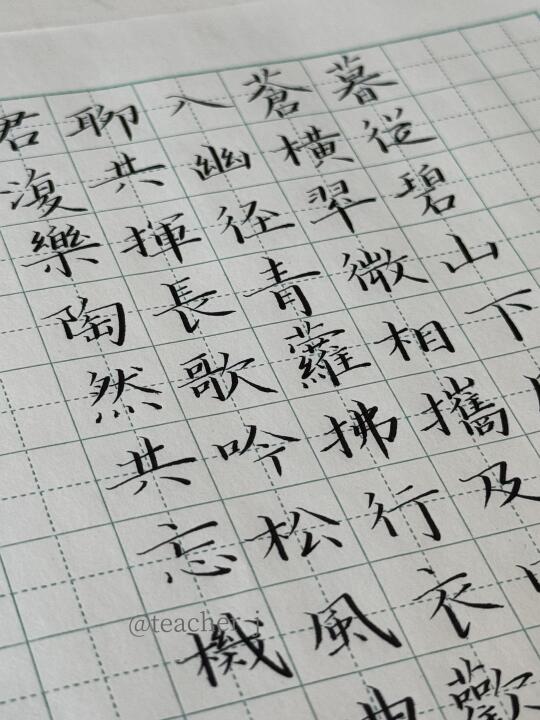 暮従碧山下
蒼横翠微相攜及
入幽径青蘿拂行衣歡
聊共揮長歌吟松風曲
君復樂陶然共忘機
@teacher_j